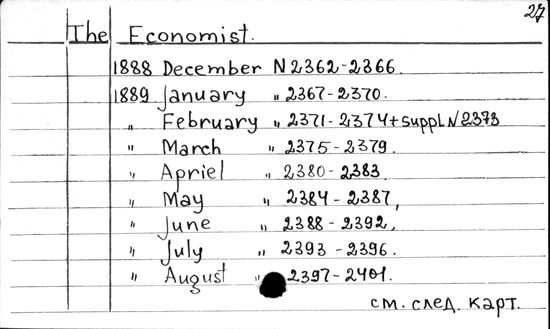 27
The Economist.
1888 December N 2362-2366.
1889 January " 2367-2370.
" February " 2371-2374 + suppl N 2373
" March " 2375-2379.
" Apriel " 2380-2383.
" May " 2384-2387,
" June " 2388-2392,
" July " 2393-2396.
" August " 2397-2401.
см. след. карт.